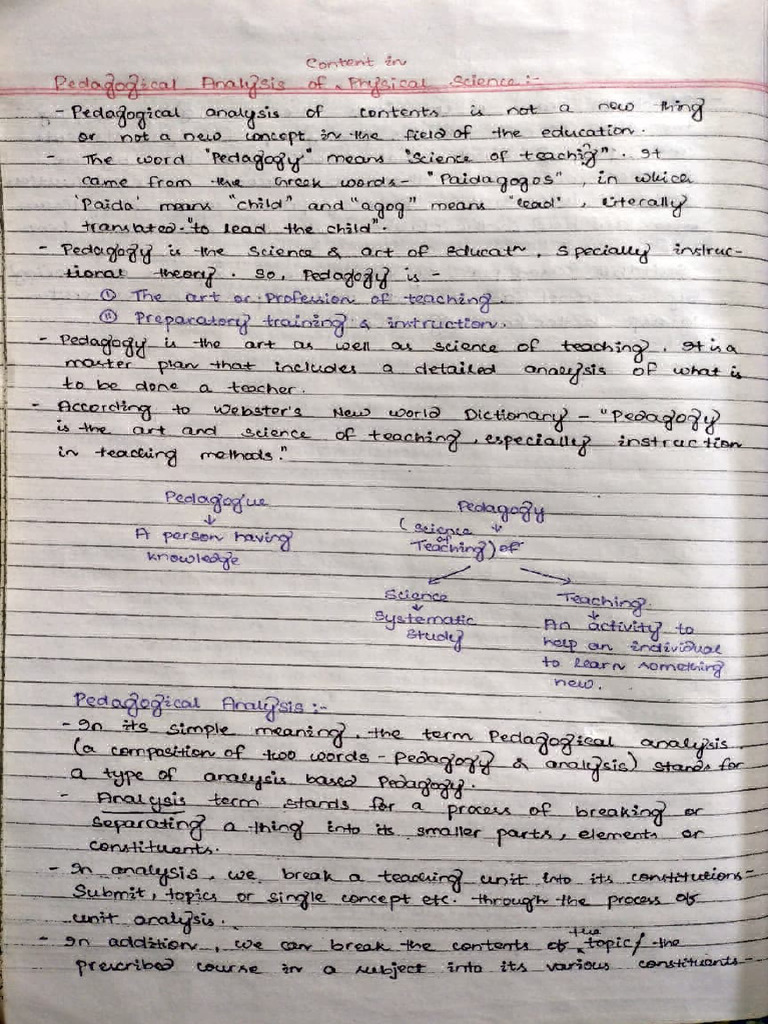 Content in
Pedagogical Analysis of ^ Physical Science :-
- Pedagogical analysis of contents is not a new thing
or not a new concept in the field of the education.
- The word "Pedagogy" means "Science of teaching". It
came from the Greek words - "Paidagogos", in which
'Paida' means "child" and "agog" means "lead", literally
translated - "to lead the child".
- Pedagogy is the Science & art of Educatn, specially instruc-
tional theory. So, Pedagogy is -
(i) The art or Profession of teaching.
(ii) Preparatory training & instruction.
- Pedagogy is the art as well as science of teaching. It is a
master plan that includes a detailed analysis of what is
to be done a teacher.
- According to Webster's New World Dictionary - "Pedagogy
is the art and science of teaching, especially instruction
in teaching methods."
Pedagogue
↓
A person having
knowledge
Pedagogy
(Science ↓
of
Teaching) of
Science
↓
Systematic
Study
Teaching
↓
An activity to
help an individual
to learn something
new.
Pedagogical Analysis :-
- In its simple meaning, the term Pedagogical analysis
(a composition of two words - Pedagogy & analysis) stands for
a type of analysis based Pedagogy.
- Analysis term stands for a process of breaking or
Separating a thing into its smaller parts, elements or
constituents.
- In analysis, we break a teaching unit into its constitutions-
Submit, topics or single concept etc. through the process of
unit analysis.
- In addition, we can break the contents of the topic/ the
prescribed course in a subject into its various constituents-